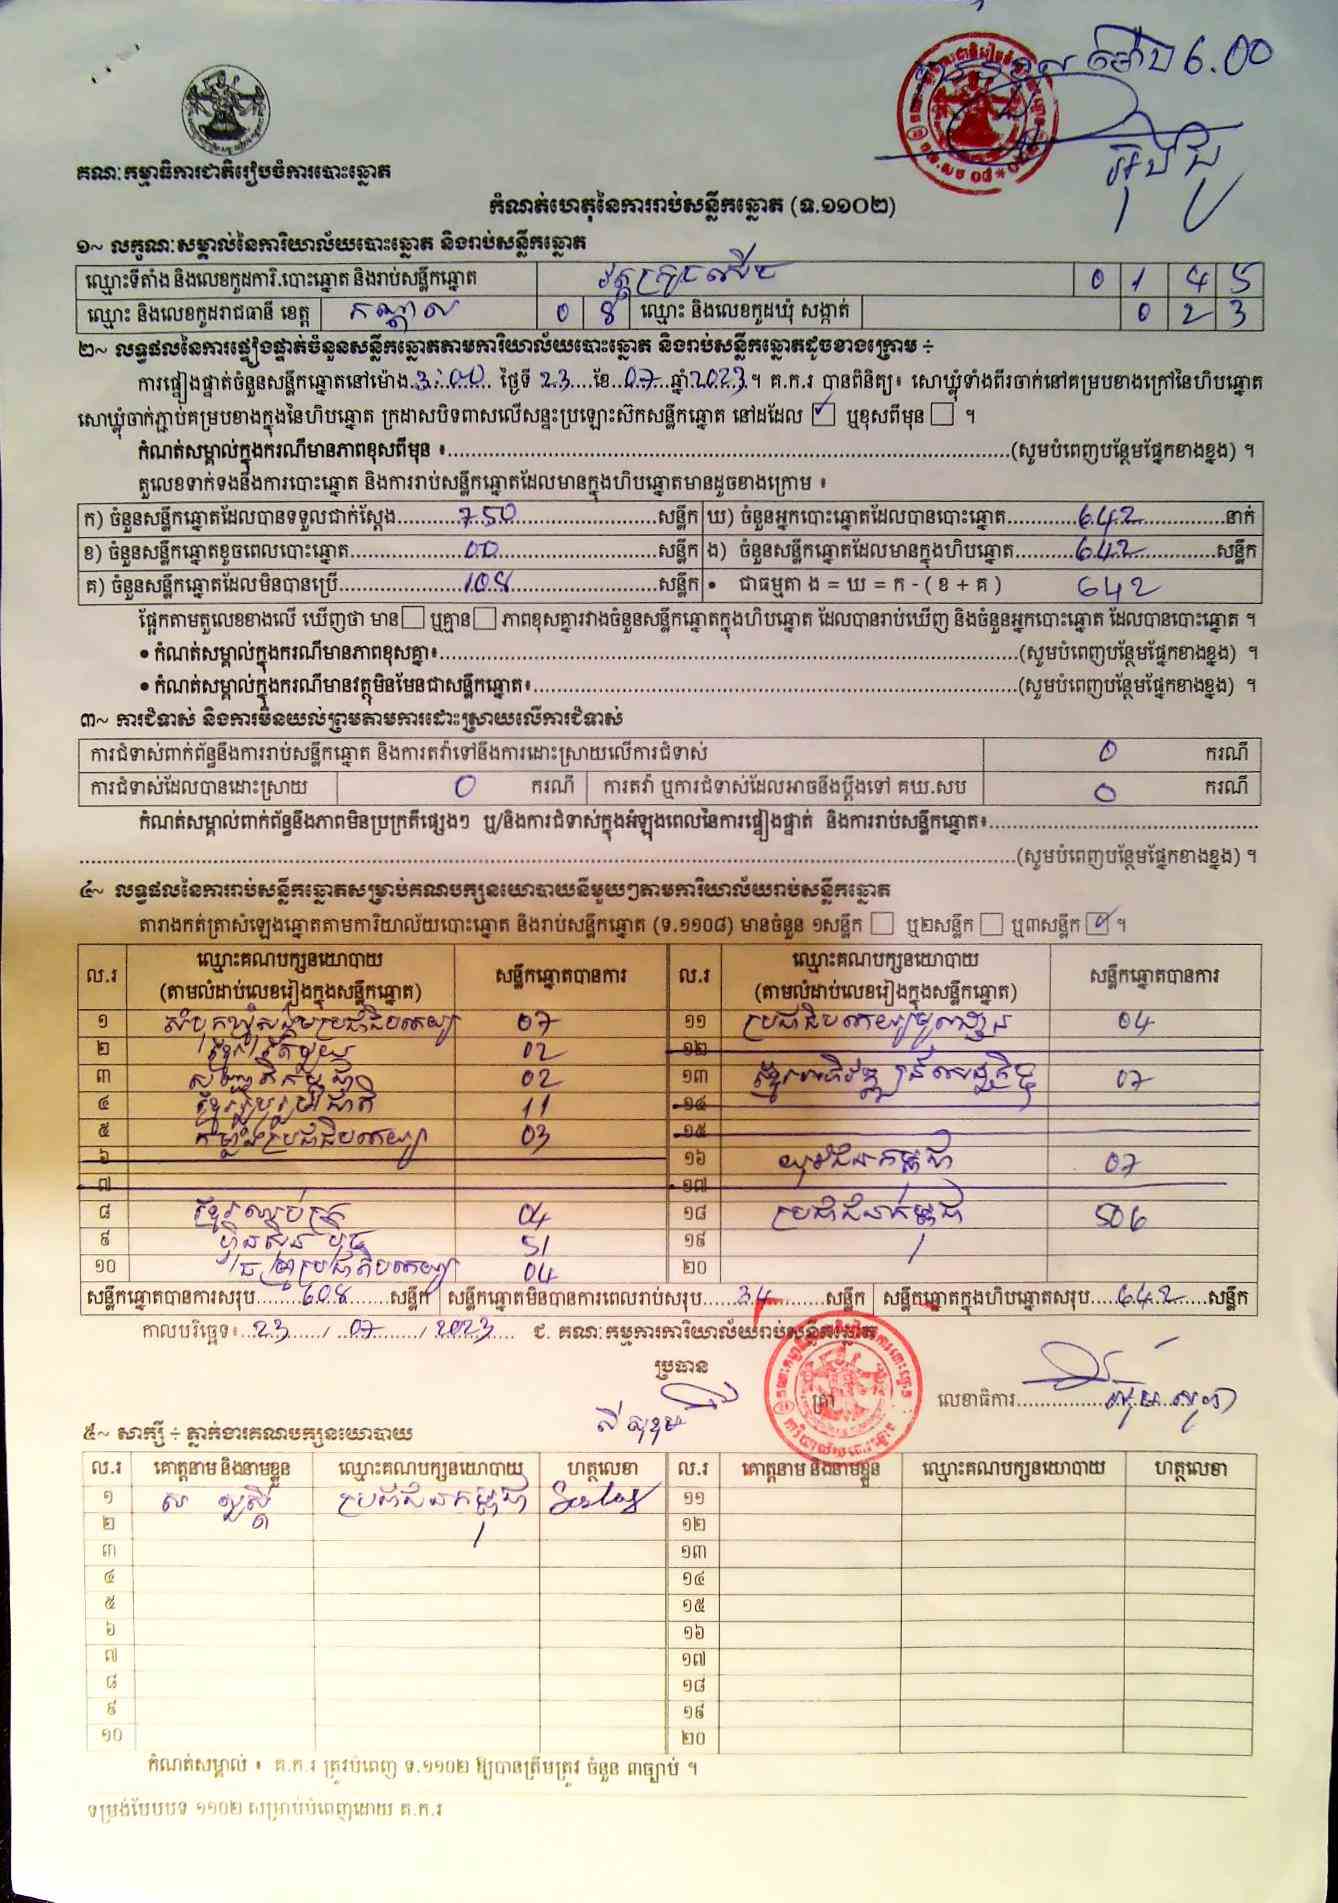 ម៉ោង 6.00
គណៈកម្មាធិការជាតិរៀបចំការបោះឆ្នោត
កំណត់ហេតុនៃការរាប់សន្លឹកឆ្នោត (ទ.១១០២)
១~ លក្ខណៈសម្គាល់នៃការិយាល័យបោះឆ្នោត និងរាប់សន្លឹកឆ្នោត
ឈ្មោះទីតាំង និងលេខកូដការិ.បោះឆ្នោត និងរាប់សន្លឹកឆ្នោត 0 1 4 5
ឈ្មោះ និងលេខកូដរាជធានី ខេត្ត កណ្តាល 0 8 ឈ្មោះ និងលេខកូដឃុំ សង្កាត់ 0 2 3
២~ លទ្ធផលនៃការផ្ទៀងផ្ទាត់ចំនួនសន្លឹកឆ្នោតតាមការិយាល័យបោះឆ្នោត និងរាប់សន្លឹកឆ្នោតដូចខាងក្រោម ÷
ការផ្ទៀងផ្ទាត់ចំនួនសន្លឹកឆ្នោតនៅម៉ោង 3:00 ថ្ងៃទី 23 ខែ 07 ឆ្នាំ 2023 ។ គ.ក.រ បានពិនិត្យ៖ សោឃ្លុំទាំងពីរចាក់នៅគម្របខាងក្រៅនៃហិបឆ្នោត
សោឃ្លុំចាក់ភ្ជាប់គម្របខាងក្នុងនៃហិបឆ្នោត ក្រដាសបិទពាសលើសន្ទះប្រឡោះស៊កសន្លឹកឆ្នោត នៅដដែល ✓ ឬខុសពីមុន ។
កំណត់សម្គាល់ក្នុងករណីមានភាពខុសពីមុន ៖ (សូមបំពេញបន្ថែមផ្នែកខាងខ្នង) ។
តួលេខទាក់ទងនឹងការបោះឆ្នោត និងការរាប់សន្លឹកឆ្នោតដែលមានក្នុងហិបឆ្នោតមានដូចខាងក្រោម ៖
ក) ចំនួនសន្លឹកឆ្នោតដែលបានទទួលជាក់ស្តែង 750 សន្លឹក ឃ) ចំនួនអ្នកបោះឆ្នោតដែលបានបោះឆ្នោត 642 នាក់
ខ) ចំនួនសន្លឹកឆ្នោតខូចពេលបោះឆ្នោត 00 សន្លឹក ង) ចំនួនសន្លឹកឆ្នោតដែលមានក្នុងហិបឆ្នោត 642 សន្លឹក
គ) ចំនួនសន្លឹកឆ្នោតដែលមិនបានប្រើ 108 សន្លឹក • ជាធម្មតា ង = ឃ = ក - ( ខ + គ ) 642
ផ្អែកតាមតួលេខខាងលើ ឃើញថា មាន ឬគ្មាន ភាពខុសគ្នារវាងចំនួនសន្លឹកឆ្នោតក្នុងហិបឆ្នោត ដែលបានរាប់ឃើញ និងចំនួនអ្នកបោះឆ្នោត ដែលបានបោះឆ្នោត ។
• កំណត់សម្គាល់ក្នុងករណីមានភាពខុសគ្នា៖ (សូមបំពេញបន្ថែមផ្នែកខាងខ្នង) ។
• កំណត់សម្គាល់ក្នុងករណីមានវត្ថុមិនមែនជាសន្លឹកឆ្នោត៖ (សូមបំពេញបន្ថែមផ្នែកខាងខ្នង) ។
៣~ ការជំទាស់ និងការមិនយល់ព្រមតាមការដោះស្រាយលើការជំទាស់
ការជំទាស់ពាក់ព័ន្ធនឹងការរាប់សន្លឹកឆ្នោត និងការតវ៉ាទៅនឹងការដោះស្រាយលើការជំទាស់ 0 ករណី
ការជំទាស់ដែលបានដោះស្រាយ 0 ករណី ការតវ៉ា ឬការជំទាស់ដែលអាចនឹងប្តឹងទៅ គឃ.សប 0 ករណី
កំណត់សម្គាល់ពាក់ព័ន្ធនឹងភាពមិនប្រក្រតីផ្សេងៗ ឬ/និងការជំទាស់ក្នុងអំឡុងពេលនៃការផ្ទៀងផ្ទាត់ និងការរាប់សន្លឹកឆ្នោត៖
(សូមបំពេញបន្ថែមផ្នែកខាងខ្នង) ។
៤~ លទ្ធផលនៃការរាប់សន្លឹកឆ្នោតសម្រាប់គណបក្សនយោបាយនីមួយៗតាមការិយាល័យរាប់សន្លឹកឆ្នោត
តារាងកត់ត្រាសំឡេងឆ្នោតតាមការិយាល័យបោះឆ្នោត និងរាប់សន្លឹកឆ្នោត (ទ.១១០៨) មានចំនួន ១សន្លឹក ឬ២សន្លឹក ឬ៣សន្លឹក ✓ ។
ល.រ ឈ្មោះគណបក្សនយោបាយ (តាមលំដាប់លេខរៀងក្នុងសន្លឹកឆ្នោត) សន្លឹកឆ្នោតបានការ ល.រ ឈ្មោះគណបក្សនយោបាយ (តាមលំដាប់លេខរៀងក្នុងសន្លឹកឆ្នោត) សន្លឹកឆ្នោតបានការ
១ សំបុកឃ្មុំសង្គមប្រជាធិបតេយ្យ 07 ១១ ប្រជាធិបតេយ្យមូលដ្ឋាន 04
២ 02 ១២
៣ សញ្ជាតិកម្ពុជា 02 ១៣ ខ្មែរអភិវឌ្ឍន៍សេដ្ឋកិច្ច 07
៤ ខ្មែររួបរួមជាតិ 11 ១៤
៥ កម្លាំងប្រជាធិបតេយ្យ 03 ១៥
៦ ១៦ យុវជនកម្ពុជា 07
៧ ១៧
៨ ខ្មែរឈប់ក្រ 04 ១៨ ប្រជាជនកម្ពុជា 506
៩ ហ្វ៊ុនស៊ិនប៉ិច 51 ១៩
១០ ធម្មាប្រជាធិបតេយ្យ 04 ២០
សន្លឹកឆ្នោតបានការសរុប 608 សន្លឹក សន្លឹកឆ្នោតមិនបានការពេលរាប់សរុប 34 សន្លឹក សន្លឹកឆ្នោតក្នុងហិបឆ្នោតសរុប 642 សន្លឹក
កាលបរិច្ឆេទ៖ 23 / 07 / 2023 ជ. គណៈកម្មការការិយាល័យរាប់សន្លឹកឆ្នោត
ប្រធាន
ត្រា លេខាធិការ
៥~ សាក្សី ÷ ភ្នាក់ងារគណបក្សនយោបាយ
ល.រ គោត្តនាម និងនាមខ្លួន ឈ្មោះគណបក្សនយោបាយ ហត្ថលេខា ល.រ គោត្តនាម និងនាមខ្លួន ឈ្មោះគណបក្សនយោបាយ ហត្ថលេខា
១ ប្រជាជនកម្ពុជា ១១
២ ១២
៣ ១៣
៤ ១៤
៥ ១៥
៦ ១៦
៧ ១៧
៨ ១៨
៩ ១៩
១០ ២០
កំណត់សម្គាល់ ៖ គ.ក.រ ត្រូវបំពេញ ទ.១១០២ ឱ្យបានត្រឹមត្រូវ ចំនួន ៣ច្បាប់ ។
ទម្រង់បែបបទ ១១០២ សម្រាប់បំពេញដោយ គ.ក.រ